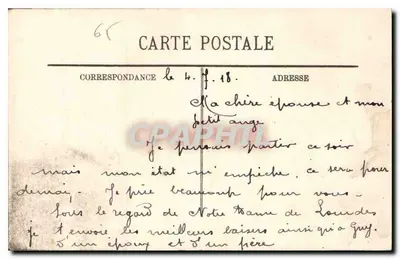 65
CARTE POSTALE
CORRESPONDANCE le 4.7.18. ADRESSE
Ma chère épouse et mon
petit ange
Je pensais partir ce soir
mais mon état m'empêche, ce sera pour
demain. Je prie beaucoup pour vous.
Sous le regard de Notre Dame de Lourdes
je t'envoie les meilleurs baisers ainsi qu'a Guy.
D'un époux et D'un père